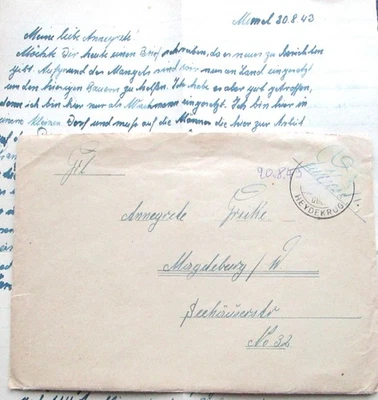 Memel 20.8.43
Meine liebe Annegrete!
Möchte Dir heute einen Brief schreiben, da es neues zu berichten
gibt. Aufgrund des Mangels sind wir nun an Land eingesetzt
um den hiesigen Bauern zu helfen. Ich habe es aber gut getroffen,
denn ich bin hier nur als Wachmann eingesetzt. Ich bin hier in
einem kleinen Dorf und muß auf die Männer die hier zur Arbeit
Frl.
20.8.43
HEYDEKRUG
Annegrete
Magdeburg/
Seehäuserstr
No 32